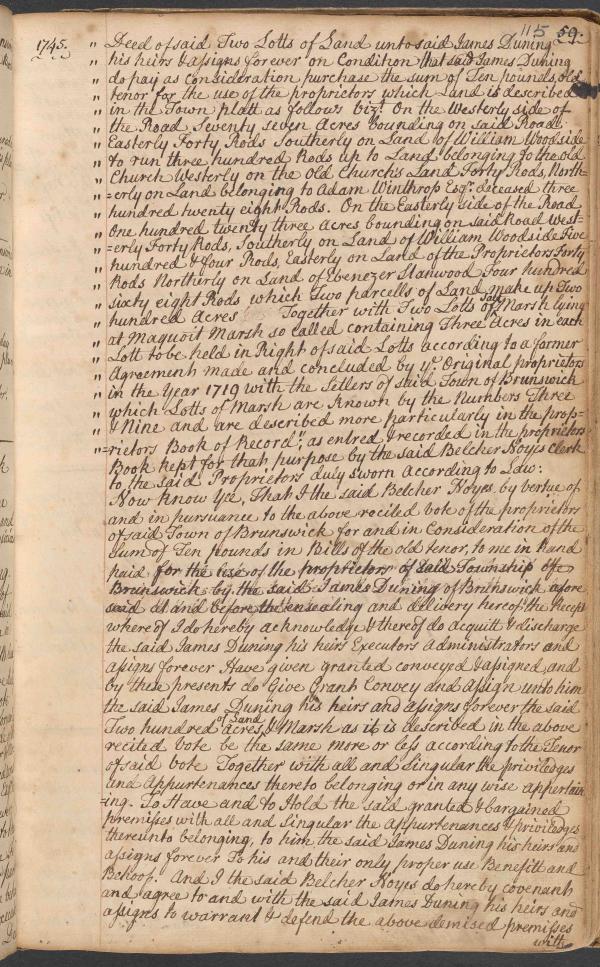 115 59.
1745. " Deed of said Two Lotts of Land unto said James Duning
" his heirs & assigns forever on Condition that said James Duning
" do pay as consideration purchase the sum of Ten pounds, old
" tenor for the use of the proprietors which Land is described
" in the Town platt as follows vizt. On the Westerly side of
" the Road, Seventy seven Acres bounding on said Road
" Easterly Forty Rods Southerly on Land of William Woodside
" to run three hundred Rods up to Land belonging to the old
" Church Westerly on the Old Church's Land Forty Rods, North=
" =erly on Land belonging to Adam Winthrop Esqr. deceased three
" hundred twenty eight Rods. On the Easterly side of the Road
" One hundred twenty three Acres bounding on said Road West=
" =erly Forty Rods, Southerly on Land of William Woodside Five
" hundred & four Rods, Easterly on Land of the Proprietors Forty
" Rods Northerly on Land of Ebenezer Stanwood Four hundred
" sixty eight Rods which Two parcells of Land make up Two
" hundred Acres Together with Two Lotts of Salt Marsh lying
" at Maquoit Marsh so called containing Three Acres in each
" Lott to be held in Right of said Lotts according to a former
" Agreement made and concluded by ye. Original proprietors
" in the Year 1719 with the Setlers of said Town of Brunswick
" which Lotts of Marsh are Known by the Numbers Three
" & Nine and are described more particularly in the prop=
" =rietors Book of Record", as entred & recorded in the proprietors
Book kept for that purpose by the said Belcher Noyes Clerk
to the said Proprietors duly sworn according to Law:
Now Know Yee, That I the said Belcher Noyes by vertue of
and in pursuance to the above recited vote of the proprietors
of said Town of Brunswick for and in Consideration of the
Sum of Ten pounds in Bills of the old tenor, to me in hand
paid for the use of the proprietors of said Township of
Brunswick by the said James Duning of Brunswick afore
said at and before the ensealing and delivery hereof the Receipt
whereof I do hereby acknowledge & thereof do acquitt & discharge
the said James Duning his heirs Executors Administrators and
assigns forever Have given granted conveyed & assigned and
by these presents do Give Grant Convey and Assign unto him
the said James Duning his heirs and assigns forever the said
Two hundred acres of Land & Marsh as it is described in the above
recited vote be the same more or less according to the Tenor
of said vote Together with all and Singular the priviledges
and Appurtenances thereto belonging or in any wise appertain
=ing. To Have and to Hold the said granted & bargained
premisses with all and singular the Appurtenances & priviledges
thereunto belonging, to him the said James Duning his heirs and
assigns forever To his and their only proper use Benefitt and
Behoof. And I the said Belcher Noyes do hereby covenant
and agree to and with the said James Duning his heirs and
assigns to warrant & defend the above demised premisses
with